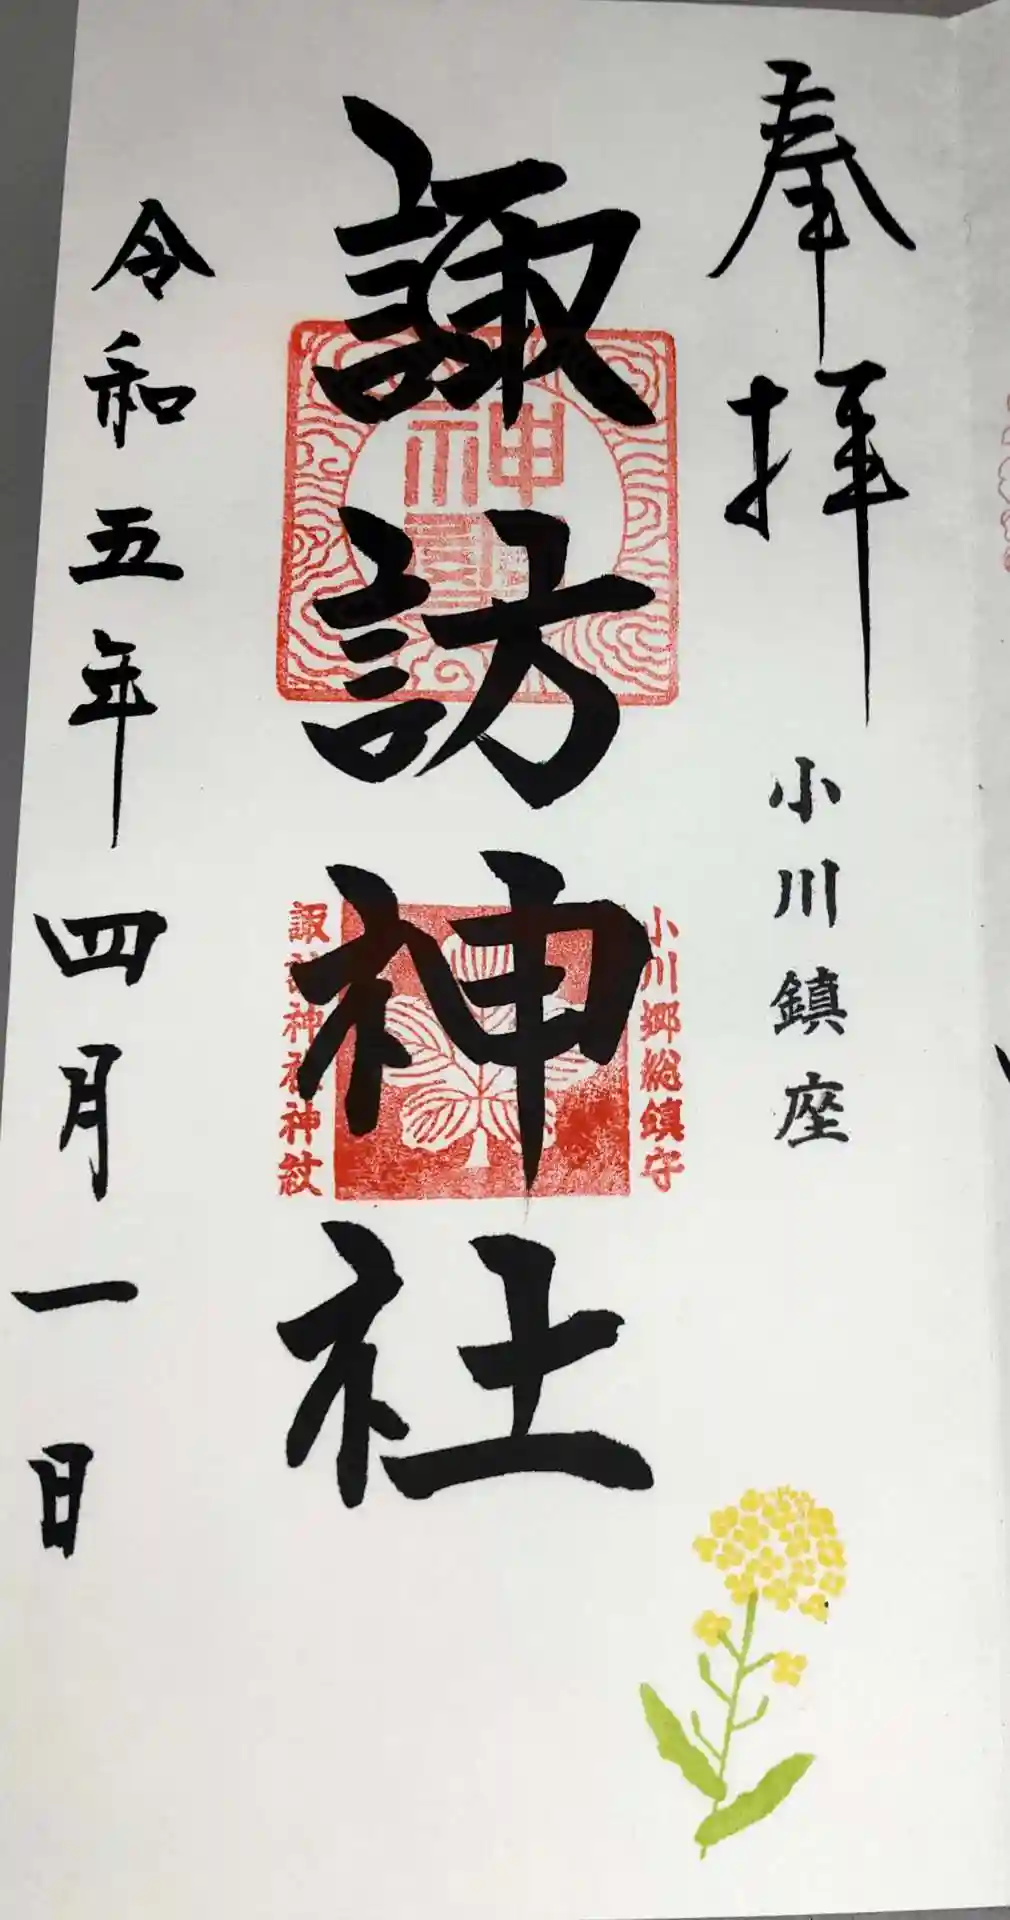 奉拝
小川鎮座
小川郷総鎮守
諏訪神社
諏訪神社神紋
令和五年四月一日